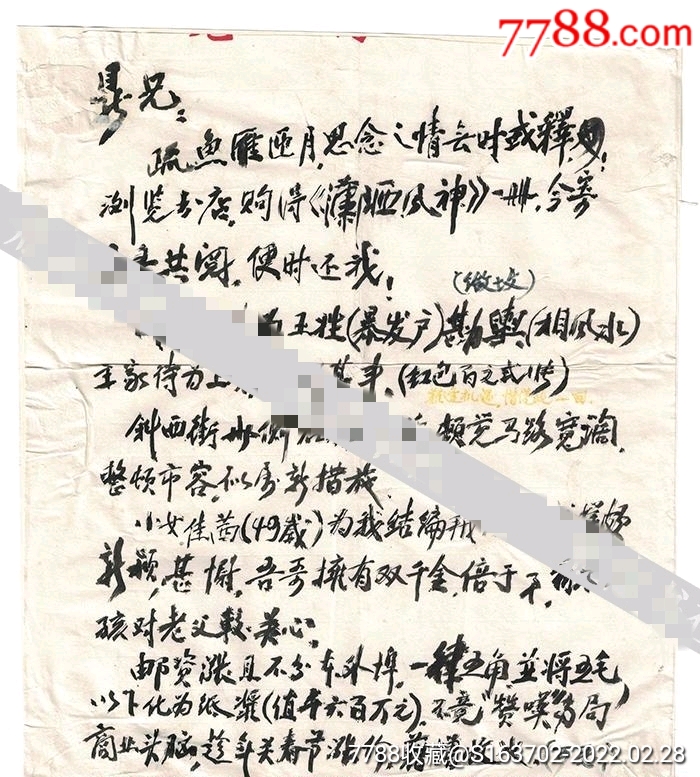 7788.com
兄:
疏鱼雁匝月,思念之情无时或释,
浏览书店,购得《潇洒风神》一册,今寄
共阅,便时还我!
(做坟)
为王姓(暴发户)勘舆(相风水)
王家待为上 其事,(红包百元式1张)
斜西街 侧 顿觉马路宽阔,
整顿市容,似属新措施
小女焦茜(49岁)为我结编
新颖,甚慰,吾哥拥有双千金,倍于 ,
孩对老父较关心,
邮资涨且不分本外埠,一律五角,并将五毛
以下化为纸浆(值币六百万元),不竟"赞叹"身局
商业头脑,趁年关春节涨价,
7788收藏@S163702-2022.02.28